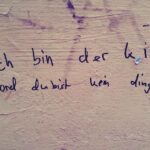 ch bin der ki
ond du bist kein ding